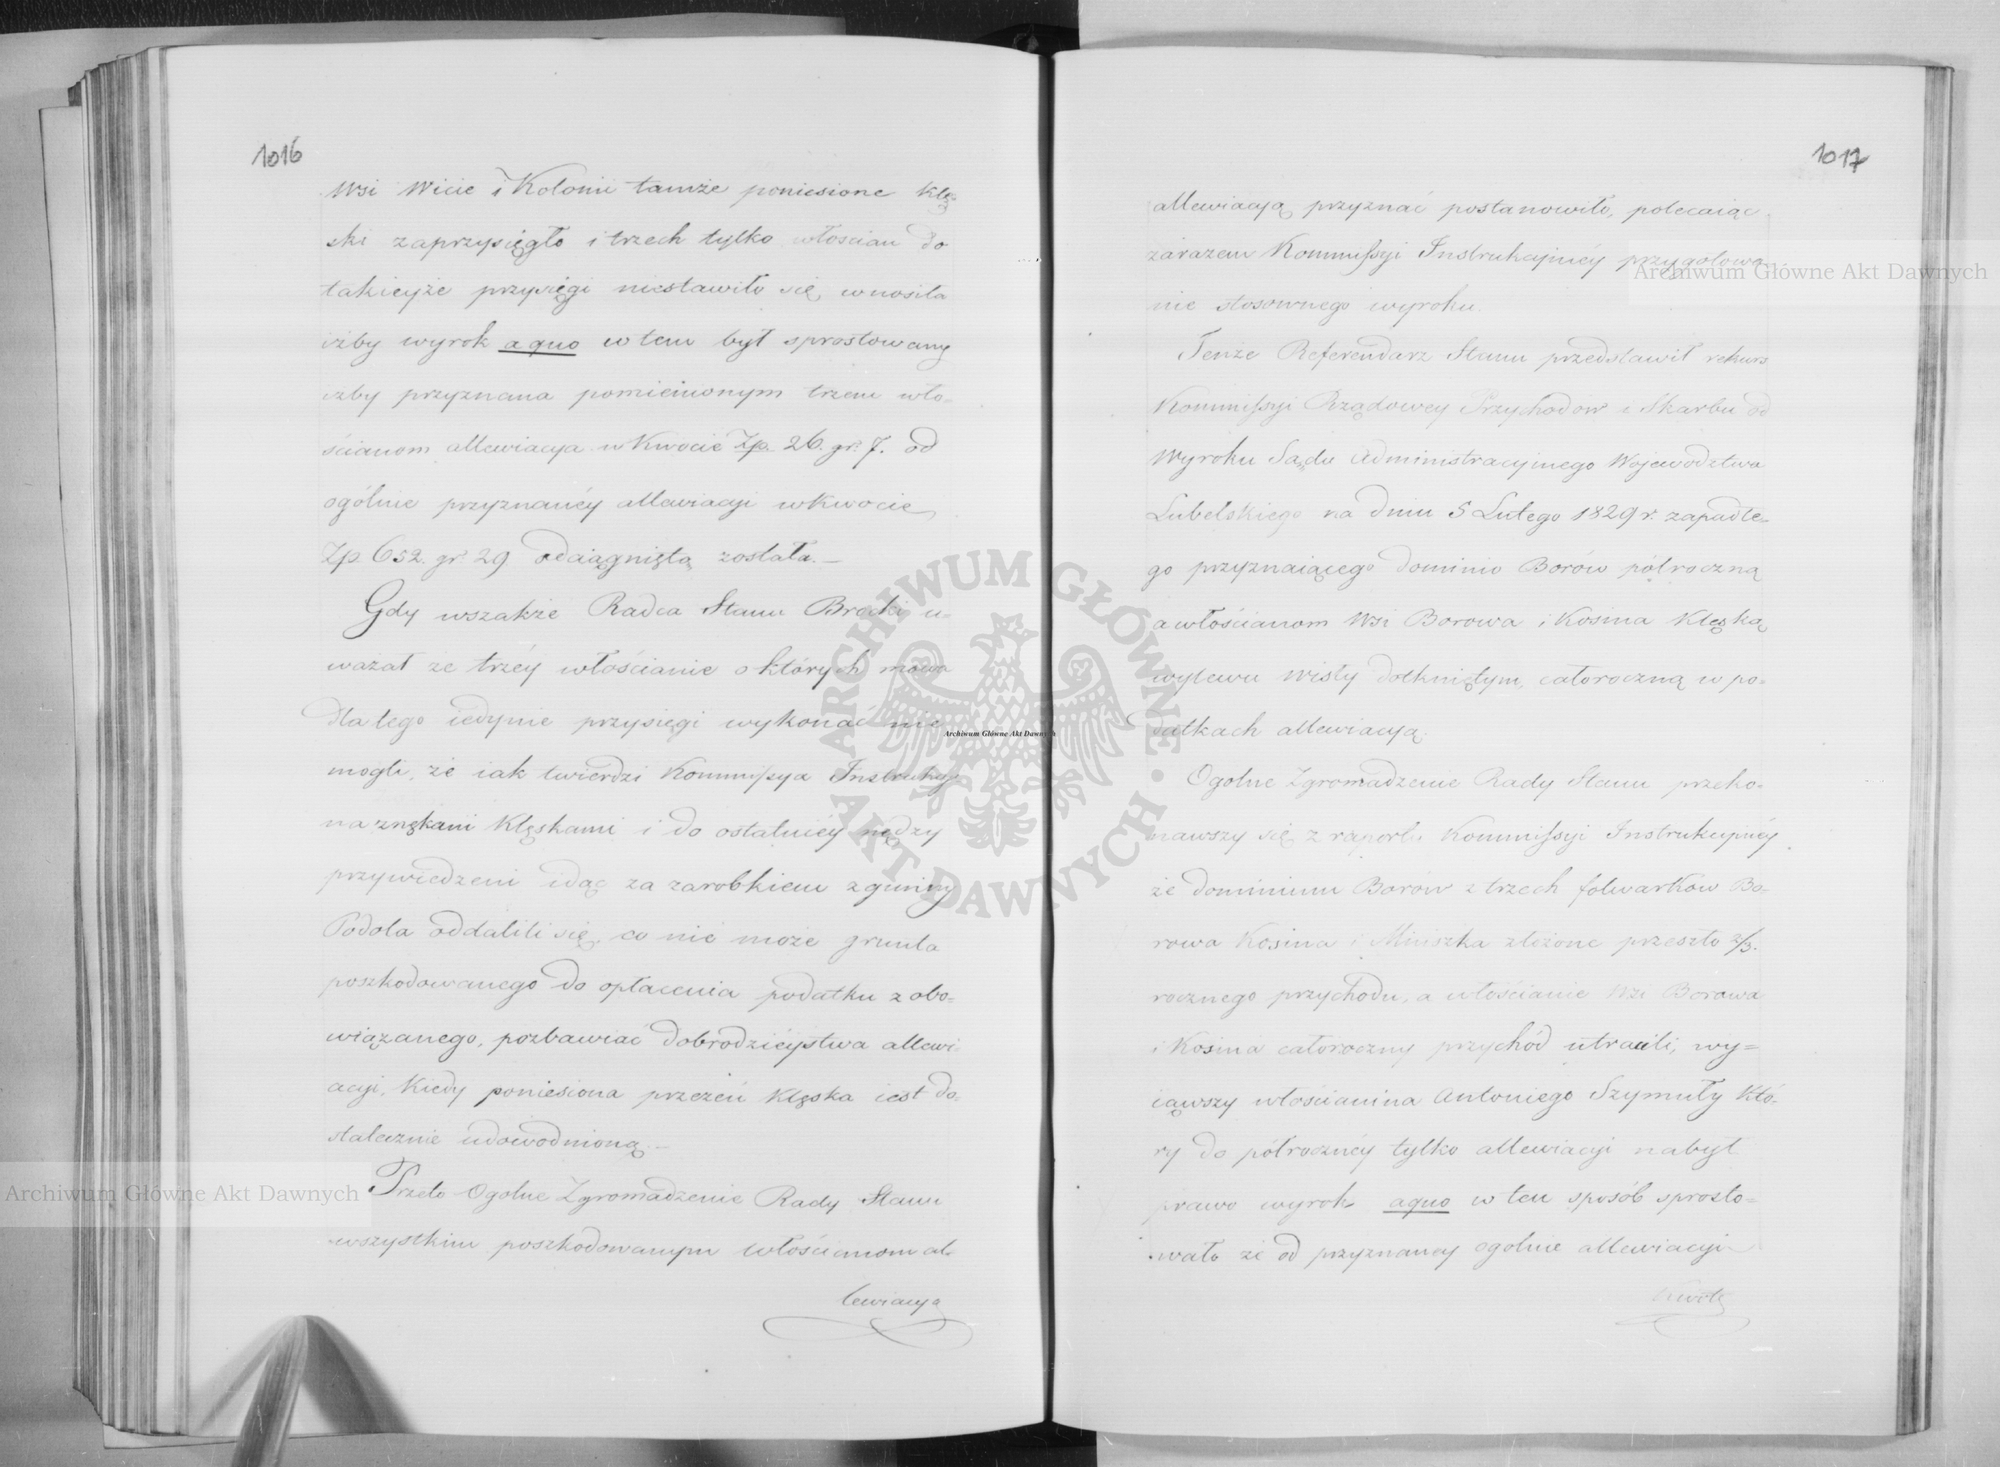 1016
Wsi Wicie i Kolonii tamże poniesione klę-
ski zaprzysięgło i trzech tylko włościan do
takieyże przysięgi niestawiło się, wnosiła
iżby wyrok a quo w tem był sprostowany
iżby przyznana pomienionym trzem wło-
ścianom allewiacya w kwocie Zp. 26. gr. 7. od
ogólnie przyznanéy allewiacyi w kwocie
Zp. 652. gr. 29 odciągniętą została. —
Gdy wszakże Radca Stanu Brocki u-
ważał że trzéy włościanie o których mowa
dla tego iedynie przysięgi wykonać nie
mogli, że iak twierdzi Kommissya Instrukcyi-
na znękani klęskami i do ostatniéy nędzy
przywiedzeni idąc za zarobkiem z gminy
Podola oddalili się, co nie może grunta
poszkodowanego do opłacenia podatku zobo-
wiązanego, pozbawiać dobrodziéystwa allewi-
acyi, kiedy poniesiona przezeń klęska iest do-
statecznie udowodnioną. —
Przeto Ogolne Zgromadzenie Rady Stanu
wszystkim poszkodowanym włościanom al-
lewiacyą
1017
allewiacyą przyznać postanowiło, polecaiąc
zarazem Kommissyi Instrukcyinéy przygotowa-
nie stosownego wyroku.
Tenże Referendarz Stanu przedstawił rekurs
Kommissyi Rządowey Przychodów i Skarbu od
Wyroku Sądu Administracyinego Województwa
Lubelskiego na dniu 5 Lutego 1829 r. zapadłe-
go przyznaiącego dominio Borów półroczną
a włościanom Wsi Borowa i Kosina klęską
wylewu Wisły dotkniętym, całoroczną w po-
datkach allewiacyą.
Ogolne Zgromadzenie Rady Stanu przeko-
nawszy się z raportu Kommissyi Instrukcyinéy
że dominium Borów z trzech folwarków Bo-
rowa Kosina i Mniszka złożone przeszło 2/3.
rocznego przychodu, a włościanie Wsi Borowa
i Kosina całoroczny przychód utracili, wy-
iąwszy włościanina Antoniego Szymuły któ-
ry do półrocznéy tylko allewiacyi nabył
prawo wyrok a quo w ten sposób sprosto-
wało że od przyznaney ogolnie allewiacyi
kwotę
Archiwum Główne Akt Dawnych
Archiwum Główne Akt Dawnych
Archiwum Główne Akt Dawnych
ARCHIWUM GŁÓWNE AKT DAWNYCH